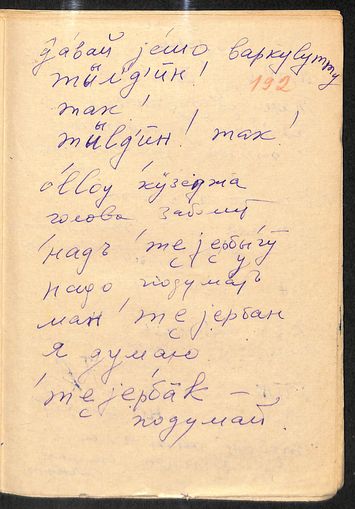 да́вай је́што варкувутту
ты̄́лд'ӣн!
192
так!
ты̄́лд'ӣн! так!
о́ллоу кӱзеджа
голова заболит
надъ т'е јербыгу
надо подумать
ман т'е јербан
я думаю
т'е јербӓк —
подумай.